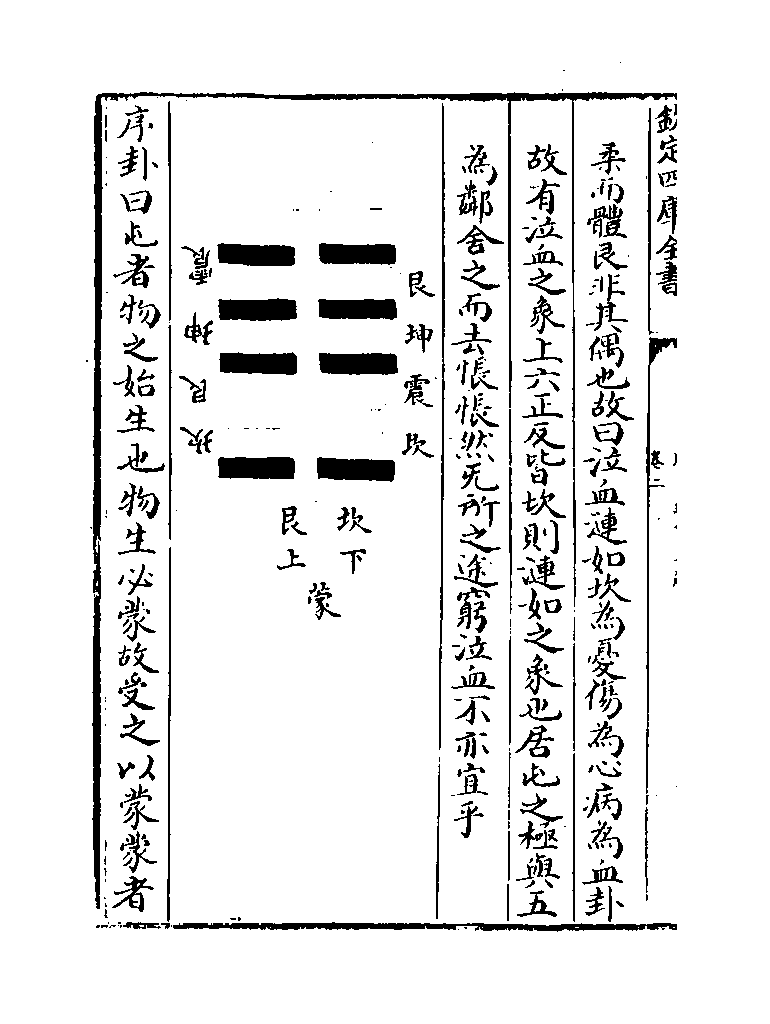 欽定四庫全書
卷二
柔而體艮非其偶也故曰泣血漣如坎為憂傷為心病為血卦
故有泣血之象上六正反皆坎則漣如之象也居屯之極與五
為鄰舍之而去悵悵然无所之途窮泣血不亦宜乎
艮坤震坎
坎下
艮上
蒙
震坤艮坎
序卦曰屯者物之始生也物生必蒙故受之以蒙蒙者